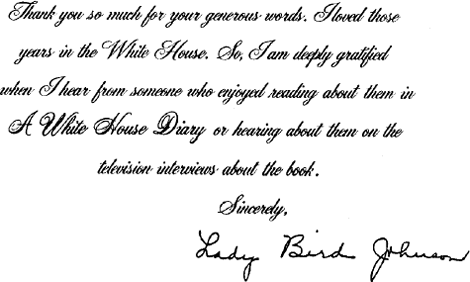 Thank you so much for your generous words. I loved those
years in the White House. So, I am deeply gratified
when I hear from someone who enjoyed reading about them in
A White House Diary or hearing about them on the
television interviews about the book.
Sincerely,
Lady Bird Johnson